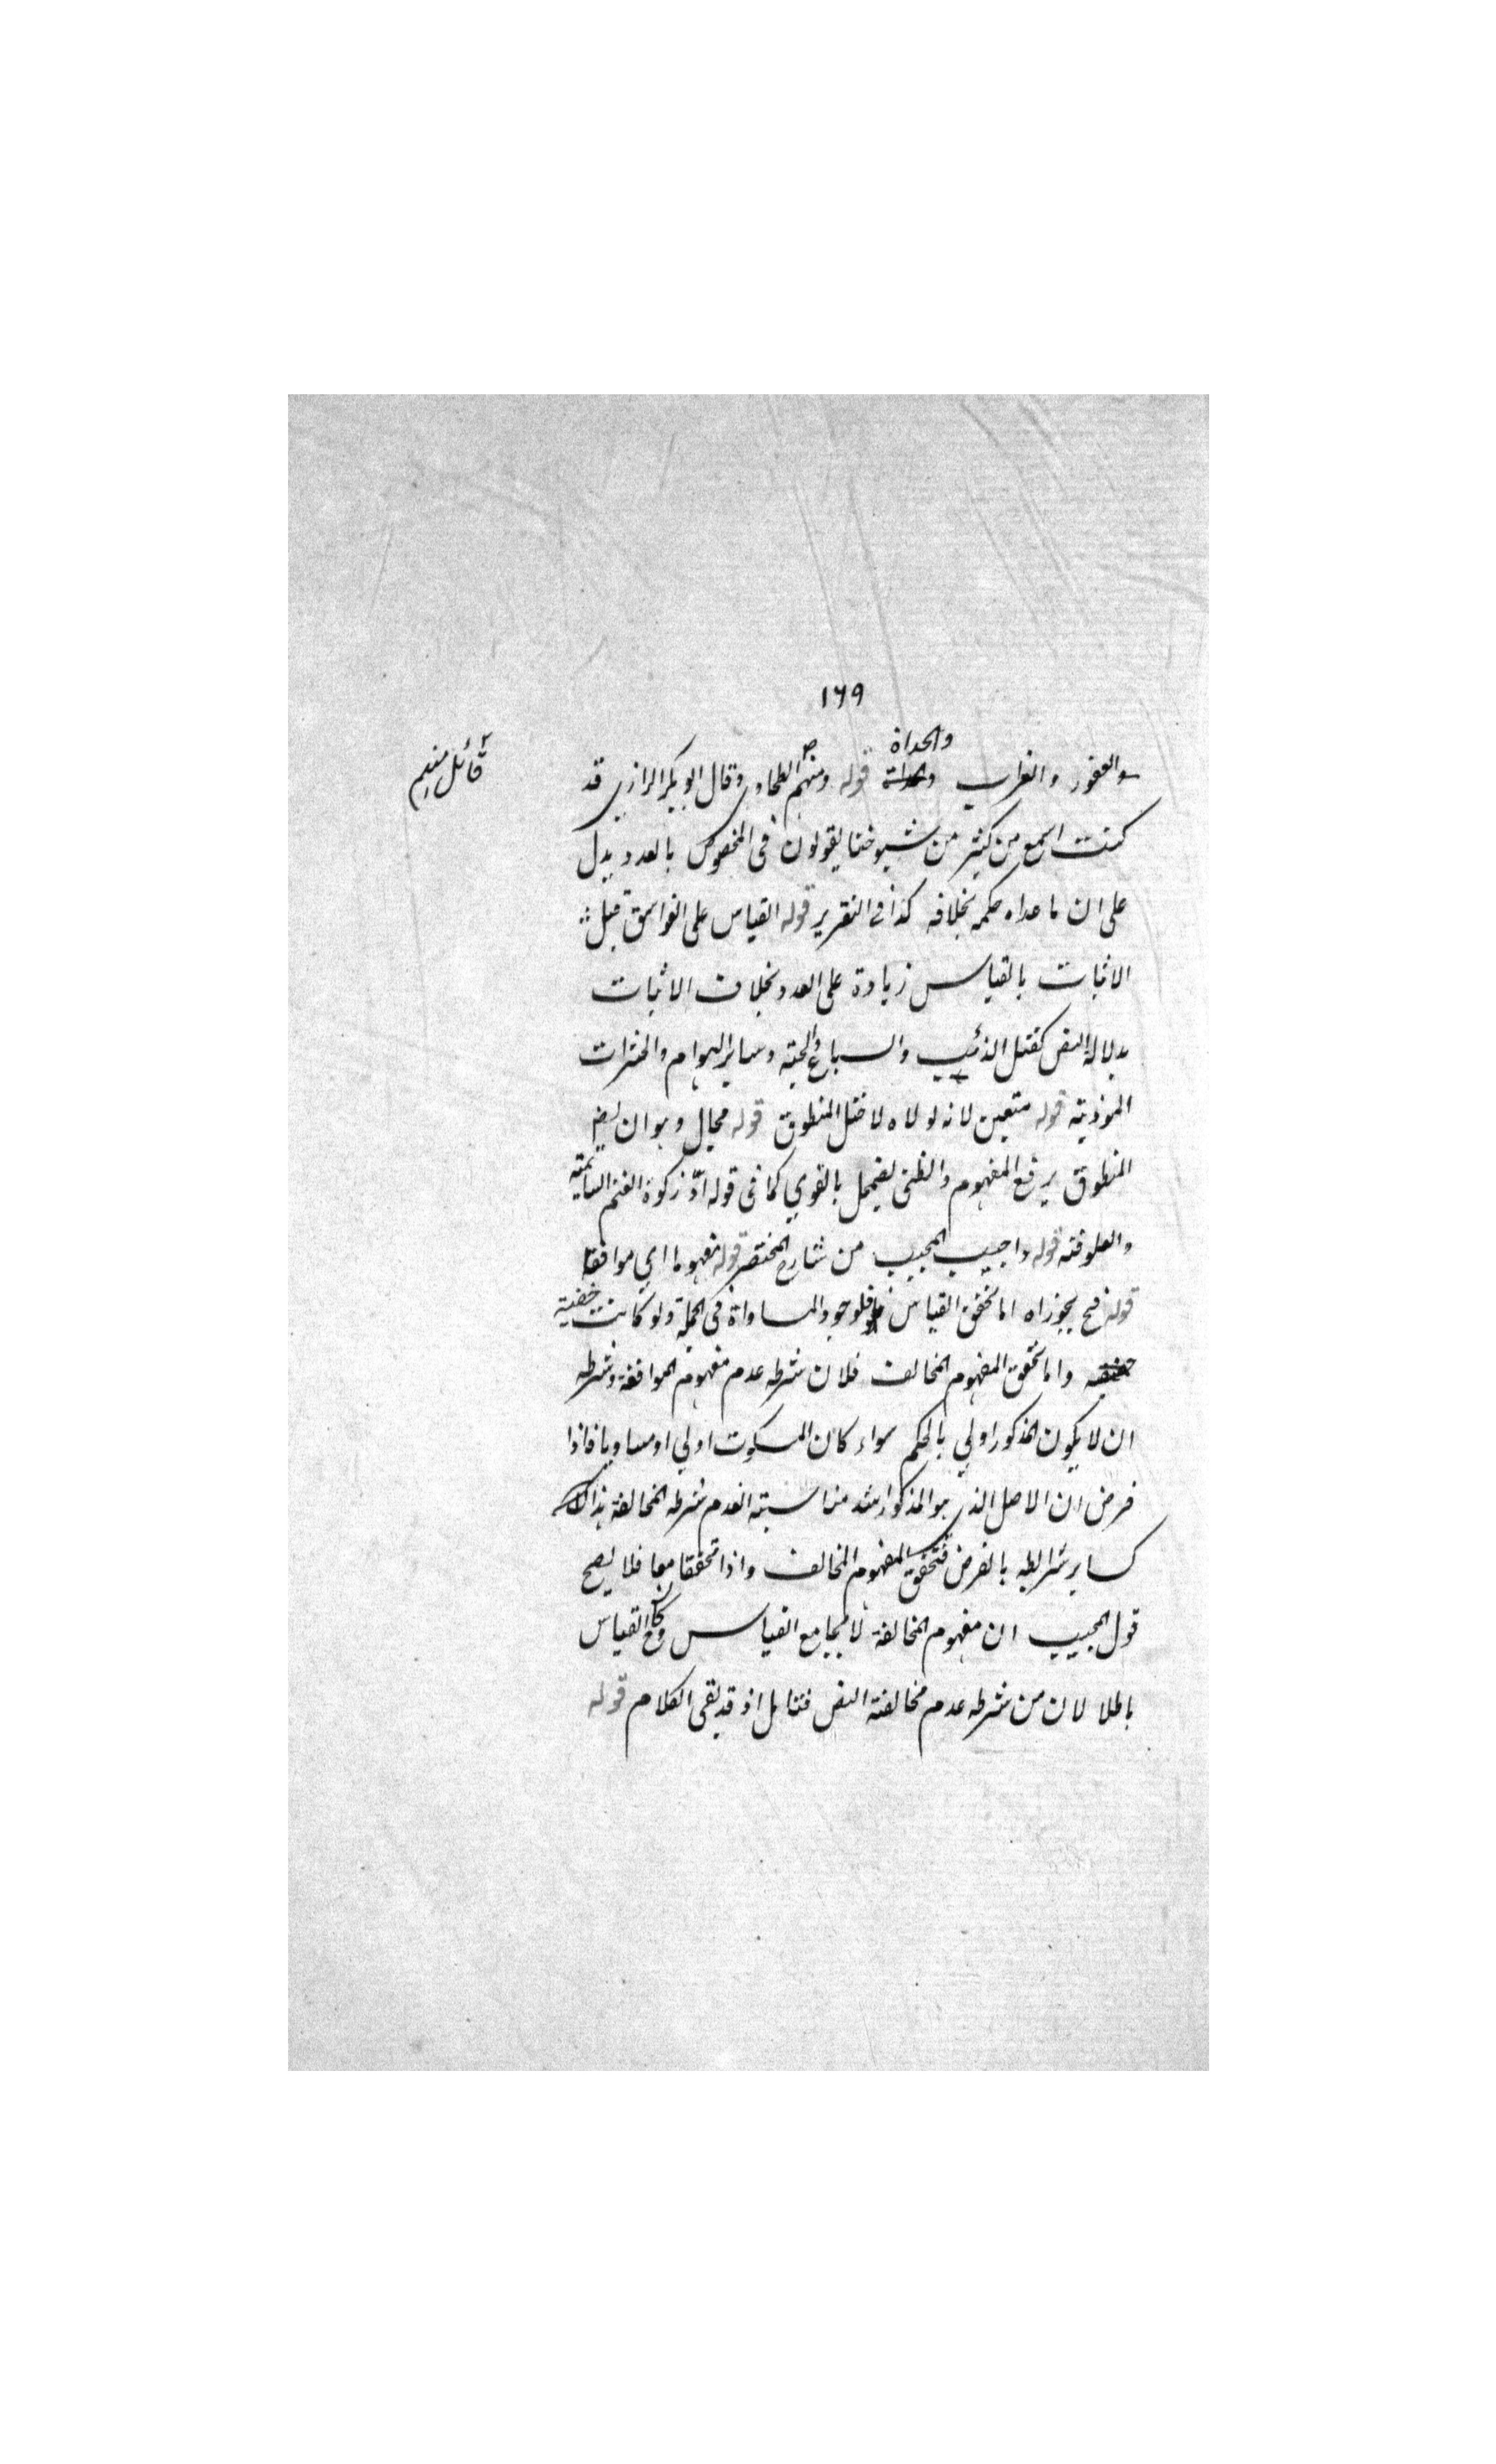 ١٦٩
والحداة
والعقور والغراب والحداة قوله ومنهم الطحاوي وقال ابو بكر الرازي قد
كنت اسمع من كثير من شيوخنا يقولون في المخصوص بالعدد يدل
على ان ما عداه حكمه بخلافه كذا في التقرير قوله القياس على الفواسق قيل
الاثبات بالقياس زيادة على العدد بخلاف الاثبات
بدلالة النص كقتل الذئب والسباع والحية وساير الهوام والحشرات
الموذية قوله متعين لانه لولاه لاختل المنطوق قوله محال وهو ان
المنطوق يرفع المفهوم والظني يضمحل بالقوي كما في قوله ادّ زكوة الغنم السائمة
والعلوفة قوله واجيب المجيب من شارح المختصر قوله مفهوما اي موافقا
قوله فح يجوزاه اما تحقق القياس فلوجود المساواة في الجملة ولو كانت خفية
واما تحقق المفهوم المخالف فلان شرطه عدم مفهوم الموافقة وشرطه
ان لا يكون المذكور اولي بالحكم سواء كان المسكوت اولي او مساويا فاذا
فرض ان الاصل الذي هو المذكور اشد مناسبة انعدم شرطه المخالفة هذا
كساير شرائطه بالفرض فتحقق المفهوم المخالف واذا تحققا معا فلا يصح
قول المجيب ان مفهوم المخالفة لا يجامع القياس القياس
باطلا لان من شرطه عدم مخالفة النص فتامل اذ قد بقي الكلام قوله
قائل منهم